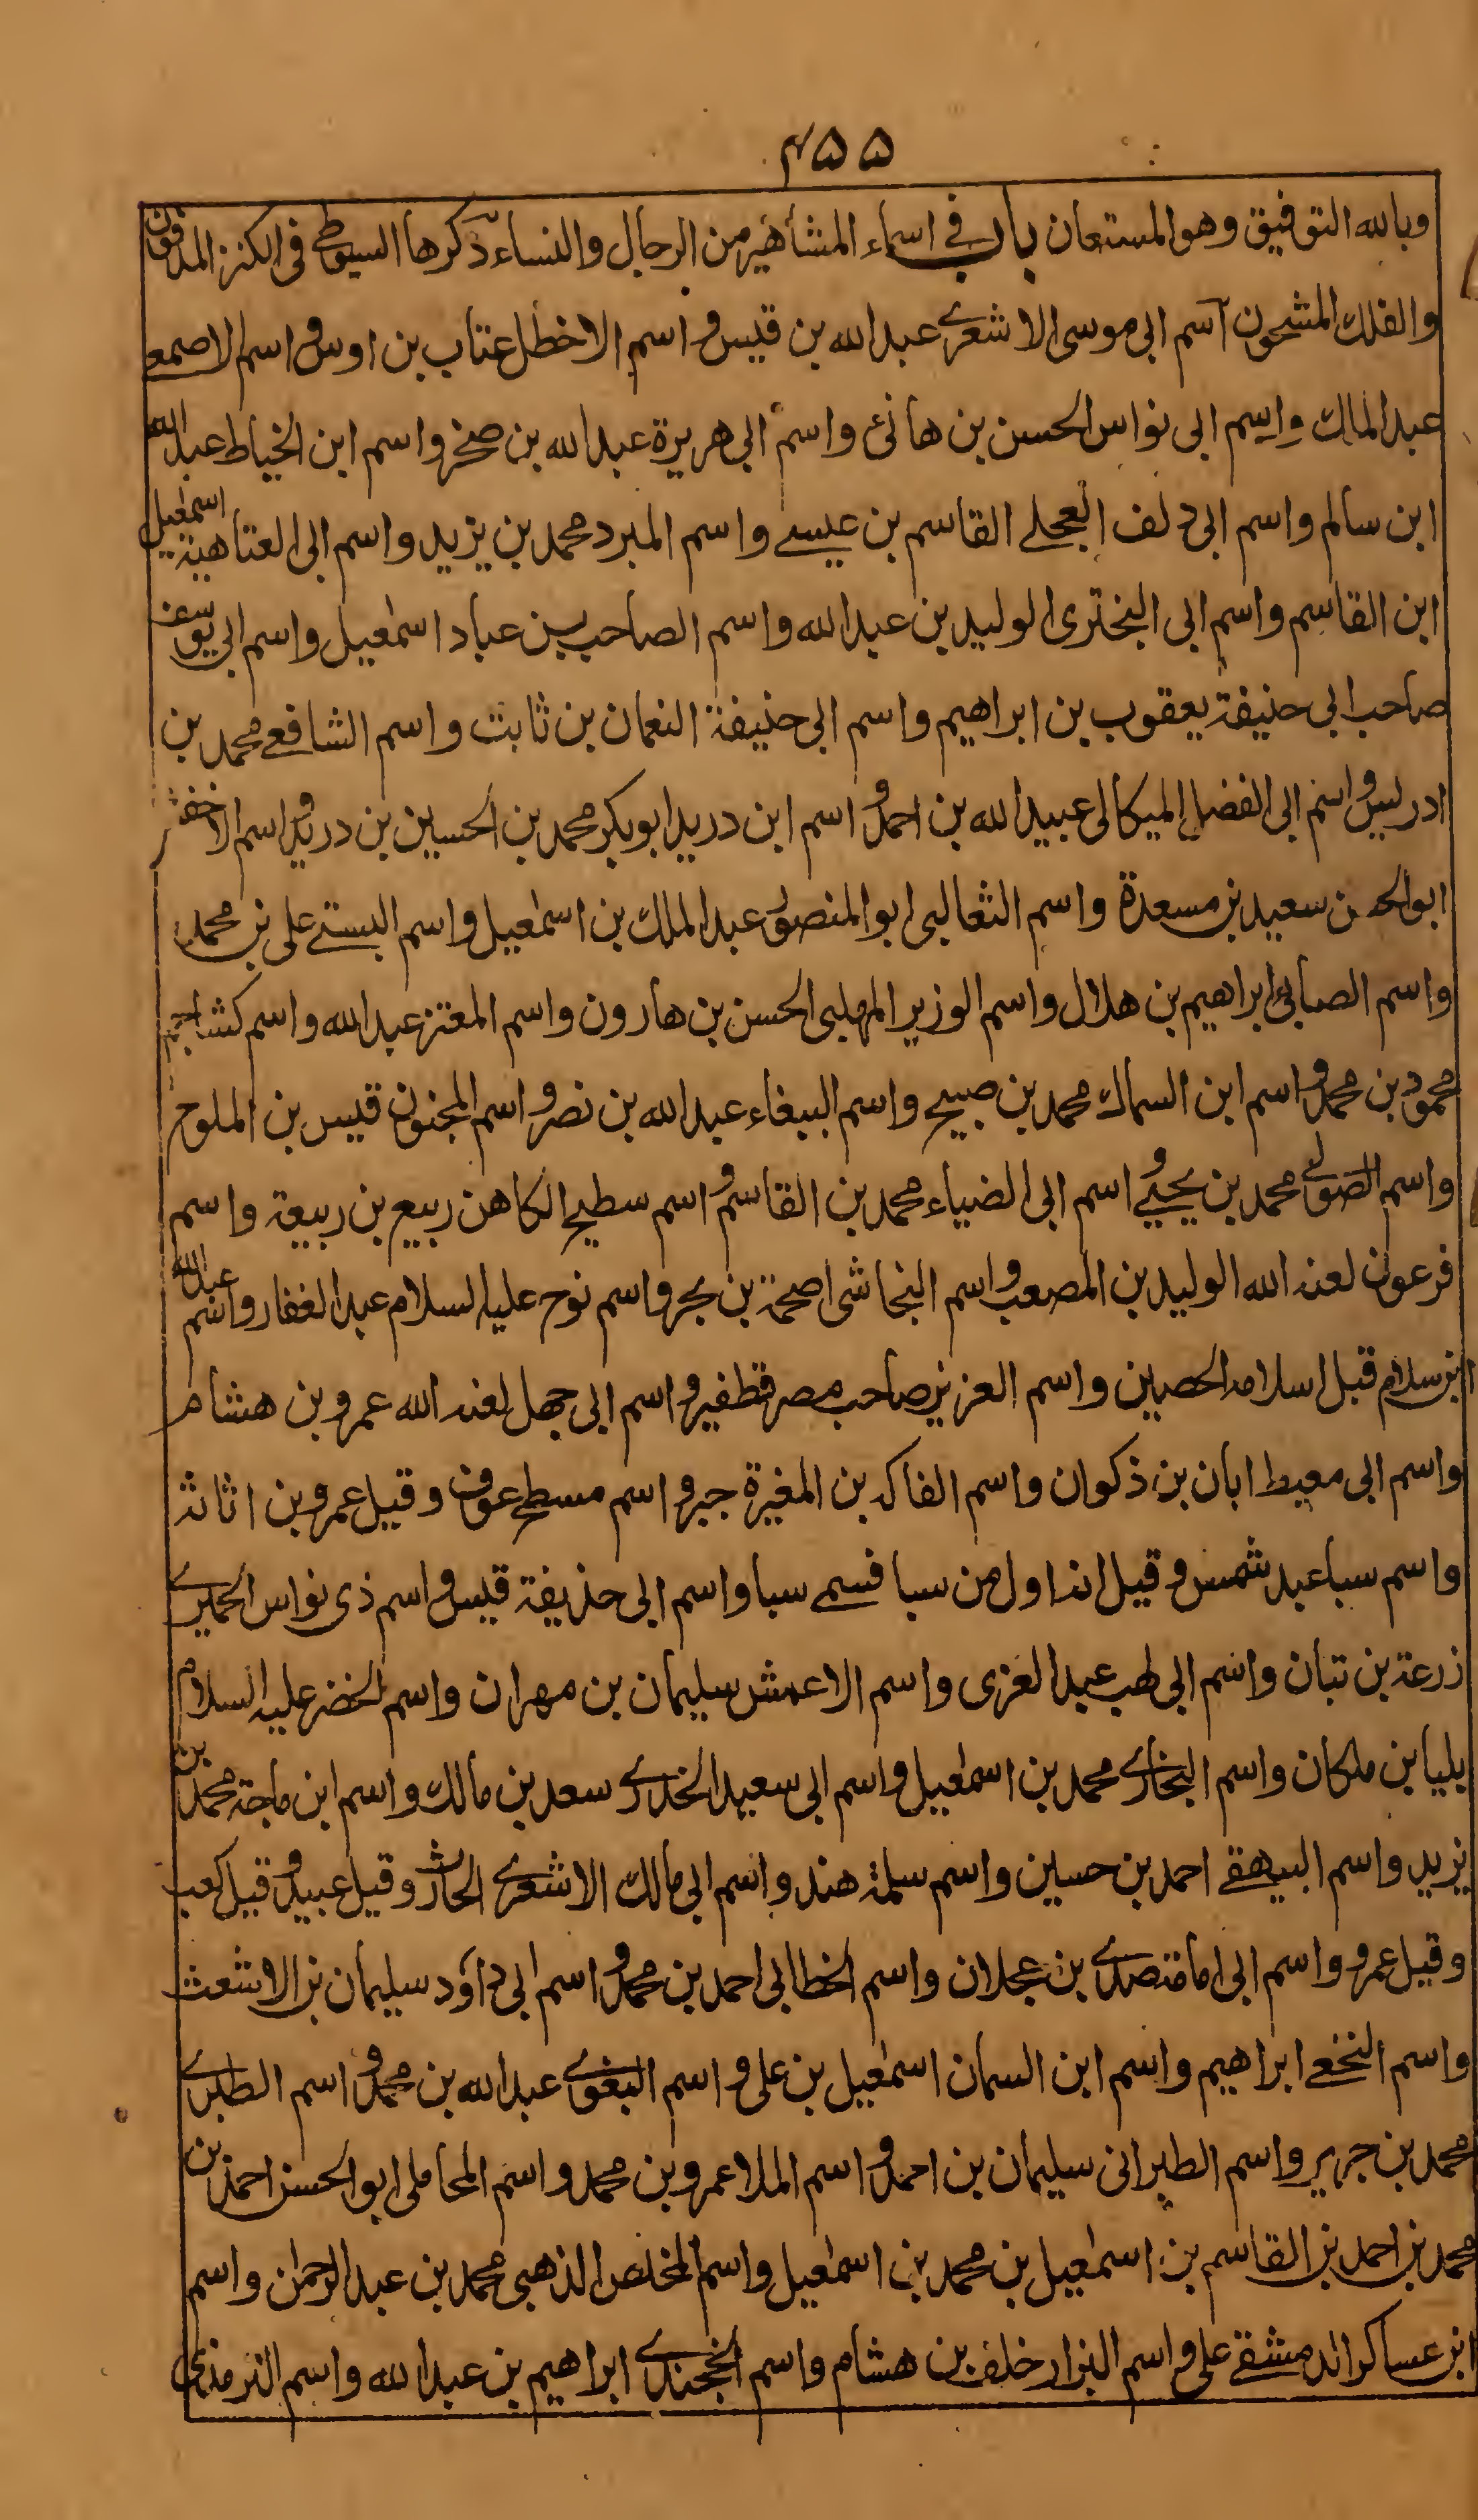 ۴۵۵
وبالله التوفيق وهو المستعان باب في اسماء المشاهير من الرجال والنساء ذكرها السيوطي في الكنز المدفون
والفلك المشحون اسم ابي موسى الاشعري عبد الله بن قيس واسم الاخطل عتاب بن اوس واسم الاصمعي
عبد الملك واسم ابي نواس الحسن بن هانئ واسم ابي هريرة عبد الله بن صخر واسم ابن الخياط عبد الله
ابن سالم واسم ابي دلف العجلي القاسم بن عيسے واسم المبرد محمد بن يزيد واسم ابي العتاهية اسمعيل
ابن القاسم واسم ابي البختري الوليد بن عبد الله واسم الصاحب بن عباد اسمعيل واسم ابي يوسف
صاحب ابي حنيفة يعقوب بن ابراهيم واسم ابي حنيفة النعمان بن ثابت واسم الشافعے محمد بن
ادريس واسم ابي الفضل الميكالي عبيد الله بن احمد واسم ابن دريد ابو بكر محمد بن الحسين بن دريد واسم الاخفش
ابو الحسن سعيد بن مسعدة واسم الثعالبي ابو المنصور عبد الملك بن اسمعيل واسم البستے علي بن محمد
واسم الصابئ ابراهيم بن هلال واسم الوزير المهلبي الحسن بن هارون واسم المعتز عبد الله واسم كشاجم
محمود بن محمد واسم ابن السماك محمد بن صبيح واسم الببغاء عبد الله بن نصر واسم المجنون قيس بن الملوح
واسم الصولے محمد بن يحيے واسم ابي الضياء محمد بن القاسم واسم سطيح الكاهن ربيع بن ربيعة واسم
فرعون لعنه الله الوليد بن المصعب واسم النجاشي اصحمة بن بحر واسم نوح عليه السلام عبد الغفار واسم عبد الله
ابن سلام قبل اسلامه الحصين واسم العزيز صاحب مصر قطفير واسم ابي جهل لعنه الله عمرو بن هشام
واسم ابي معيط ابان بن ذكوان واسم الفاكه بن المغيرة جبر واسم مسطح عوف وقيل عمرو بن اثاثة
واسم سبا عبد شمس وقيل انه اول من سبا فسمے سبا واسم ابي حذيفة قيس واسم ذي نواس الحميرے
زرعة بن تبان واسم ابي لهب عبد العزى واسم الاعمش سليمان بن مهران واسم الخضر عليه السلام
بليا بن ملكان واسم البخارے محمد بن اسمعيل واسم ابي سعيد الخدرے سعد بن مالك واسم ابن ماجة محمد بن
يزيد واسم البيهقے احمد بن حسين واسم سلمة هند واسم ابي مالك الاشعرے الحارث وقيل عبيد وقيل كعب
وقيل عمرو واسم ابي امامة صدے بن عجلان واسم الخطابي احمد بن محمد واسم ابي داود سليمان بن الاشعث
واسم النخعے ابراهيم واسم ابن السمان اسمعيل بن علي واسم البغوے عبد الله بن محمد واسم الطبرے
محمد بن جرير واسم الطبراني سليمان بن احمد واسم الملا عمرو بن محمد واسم المحاملي ابو الحسن احمد بن
محمد بن احمد بن القاسم بن اسمعيل بن محمد بن اسمعيل واسم المخلص الذهبي محمد بن عبد الرحمن واسم
ابن عساكر الدمشقے علي واسم البزار خلف بن هشام واسم الخجندے ابراهيم بن عبد الله واسم الترمذي